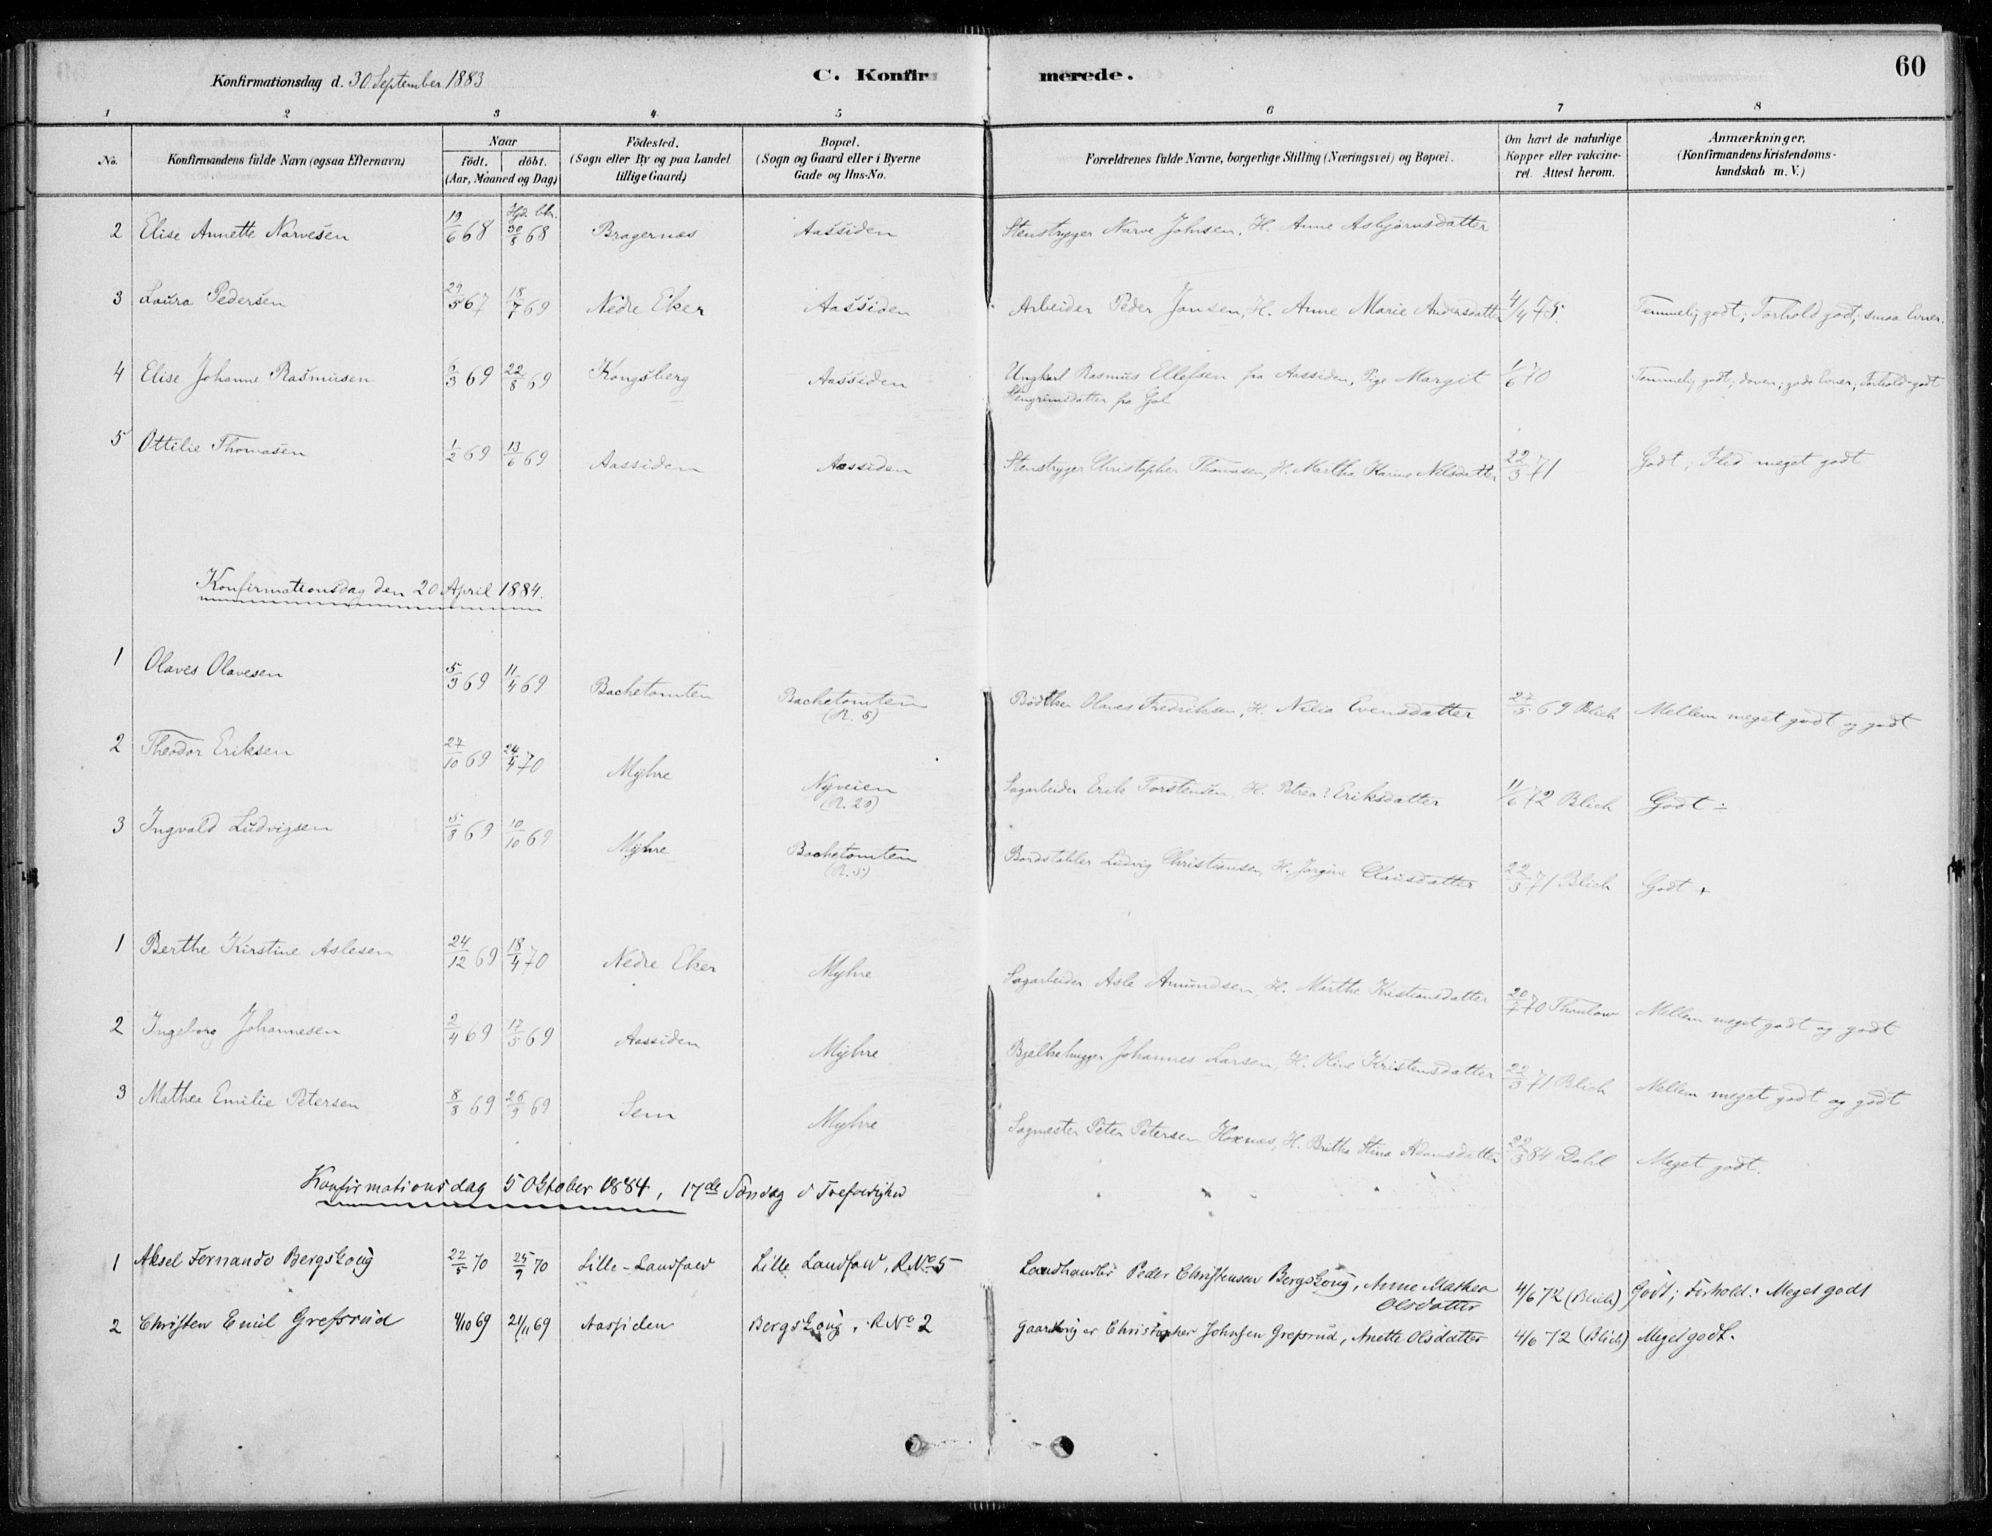 Konfirmationsdag d. 30 September 1883
C. Konfirmerede.
60
1 2 3 4 5 6 7 8
No. Konfirmandens fulde Navn (ogsaa Efternavn) Naar födt. döbt. (Aar, Maaned og Dag) Födested. (Sogn eller By og paa Landet tillige Gaard) Bopæl. (Sogn og Gaard eller i Byerne Gade og Hus-No. Forældrenes fulde Navne, borgerlige Stilling (Næringsvei) og Bopæl. Om havt de naturlige Kopper eller vakcineret. Attest herom. Anmærkninger. (Konfirmandens Kristendomskundskab m. V.)
2 Elise Annette Narvesen 19/6 68 30/8 68 Bragernæs Aassiden Stenstryger Narve Johnsen, H. Anne Asbjørnsdatter
3 Laura Pedersen 29/5 67 18/7 69 Nedre Eker Aassiden Arbeider Peder Jansen, H. Anne Marie Andersdatter 4/4 75. Temmelig godt; Forhold godt; smaa Evner.
4 Elise Johanne Rasmusen 6/3 69 22/8 69 Kongsberg Aassiden Ungkarl Rasmus Ellefsen fra Aassiden, Pige Margit 1/6 70 Temmelig godt; doven; gode Evner; Forhold godt
Stengrimsdatter fra Gol
5 Ottilie Thomasen 1/2 69 13/6 69 Aassiden Aassiden Stenstryger Christopher Thomasen, H. Martha Karine Nelsdatter 22/3 71 Godt; Flid meget godt
Konfirmationsdag den 20 April 1884.
1 Olaves Olavesen 5/3 69 11/4 69 Bachetomten Bachetomten (R. 5) Bødtker Olaves Fredriksen, H. Nilia Evensdatter 27/5 69 Blich Mellem meget godt og godt
2 Theodor Eriksen 27/10 69 24/4 70 Myhre Nyveien (R. 20) Sagarbeider Erik Torstensen, H. Petrea? Eriksdatter 11/6 72 Blich Godt ÷
3 Ingvald Ludvigsen 5/8 69 10/10 69 Myhre Bachetomten (R. 5) Bordstabler Ludvig Christiansen, H. Jørgine Clausdatter 22/3 71 Blich Godt +
1 Berthe Kirstine Aslesen 24/12 69 18/4 70 Nedre Eker Myhre Sagarbeider Asle Amundsen, H. Marthe Kristiansdatter 20/7 70 Thaulow Mellem meget godt og godt
2 Ingeborg Johannesen 2/4 69 17/5 69 Aassiden Myhre Bjelkehugger Johannes Larsen, H. Oline Kristensdatter 22/3 71 Blich Mellem meget godt og godt
3 Mathea Emilie Petersen 8/8 69 26/9 69 Sem Myhre Sagmester Peter Petersen Hoxnæs, H. Britha Stina Adamsdatter 22/3 84 Dahl Meget godt.
Konfirmationsdag 5 Oktober 1884, 17de Søndag e Trefoldighed
1 Aksel Fernando Bergskoug 22/5 70 25/9 70 Lille-Landfald Lille Landfald, R No 5 Landhandler Peder Christensen Bergskoug, Anne Mathea Olsdatter 4/6 72 (Blich) Godt; Forhold: Meget godt
2 Christen Emil Grefsrud 4/10 69 21/11 69 Aassiden Bergskoug, R No 2 Gaardbruger Christopher Johnsen Grefsrud, Anette Olsdatter 4/6 72 (Blich) Meget godt.